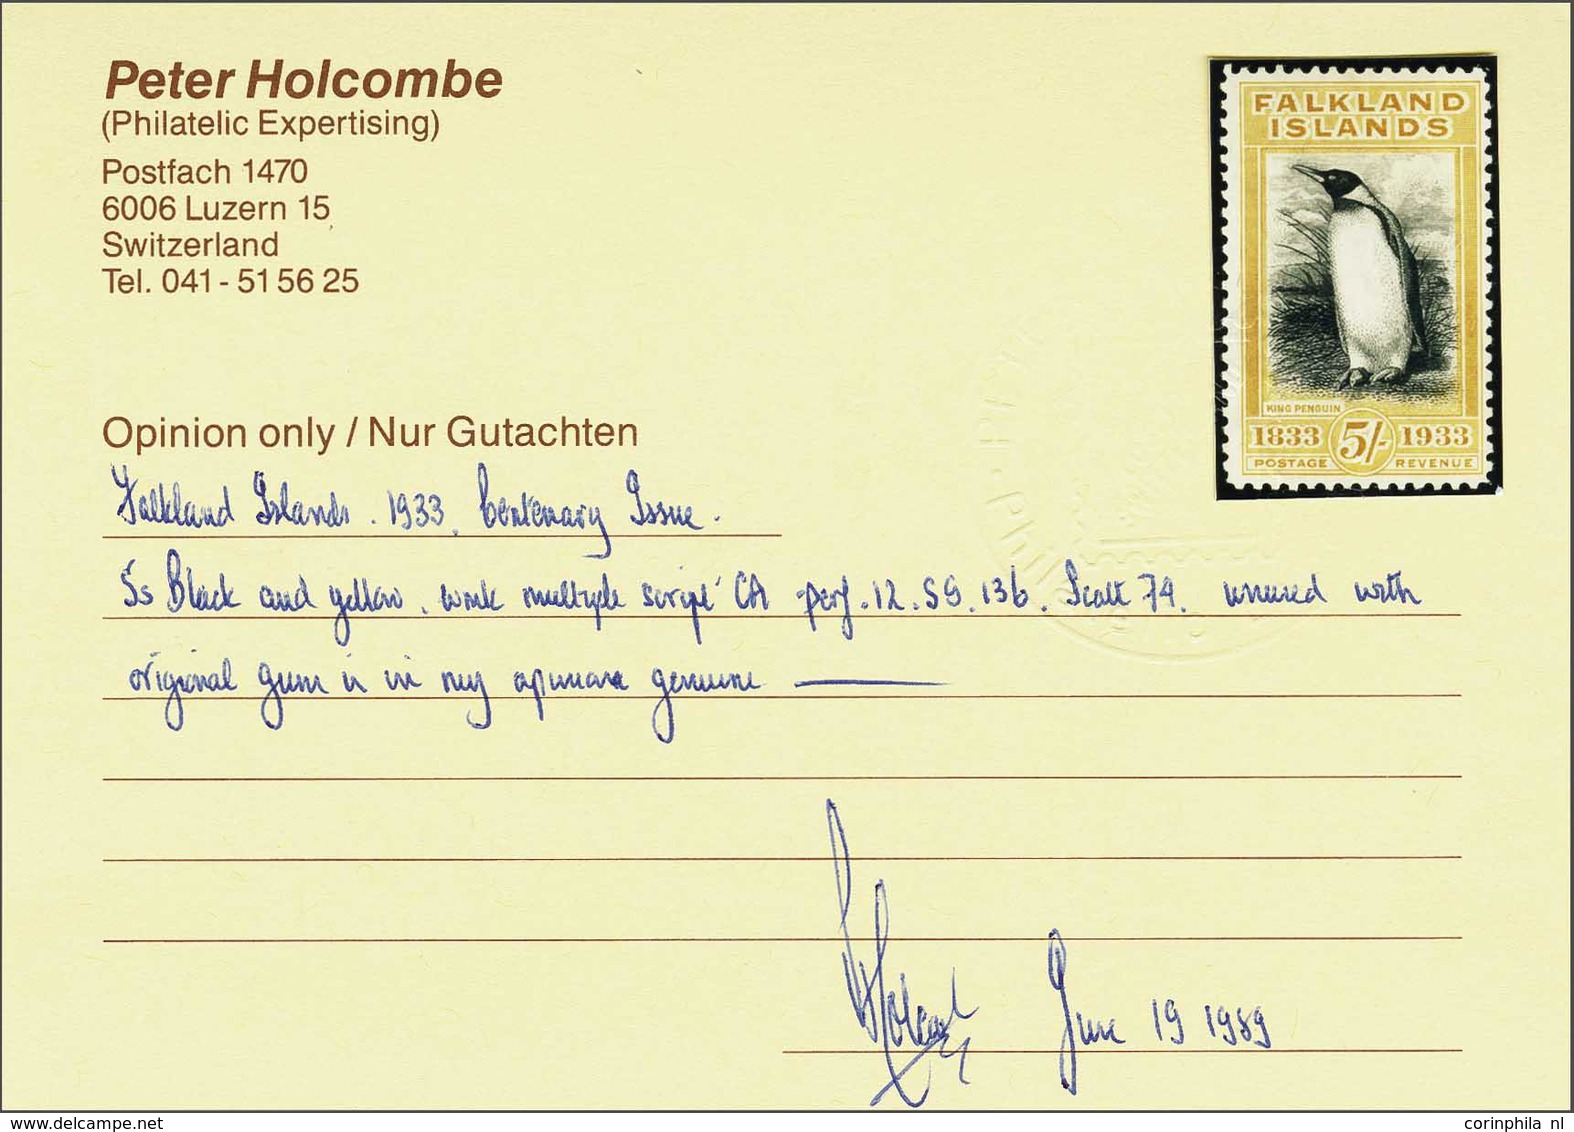 Peter Holcombe
(Philatelic Expertising)
Postfach 1470
6006 Luzern 15
Switzerland
Tel. 041 - 51 56 25
FALKLAND
ISLANDS
KING PENGUIN
1833 5/- 1933
POSTAGE REVENUE
Opinion only / Nur Gutachten
Falkland Islands . 1933 . Centenary Issue .
5s Black and yellow . wmk multiple script CA perf . 12 . SG . 136 . Scott 74 . unused with
original gum is in my opinion genuine
Holcombe June 19 1989
www.delcampe.net
corinphila nl